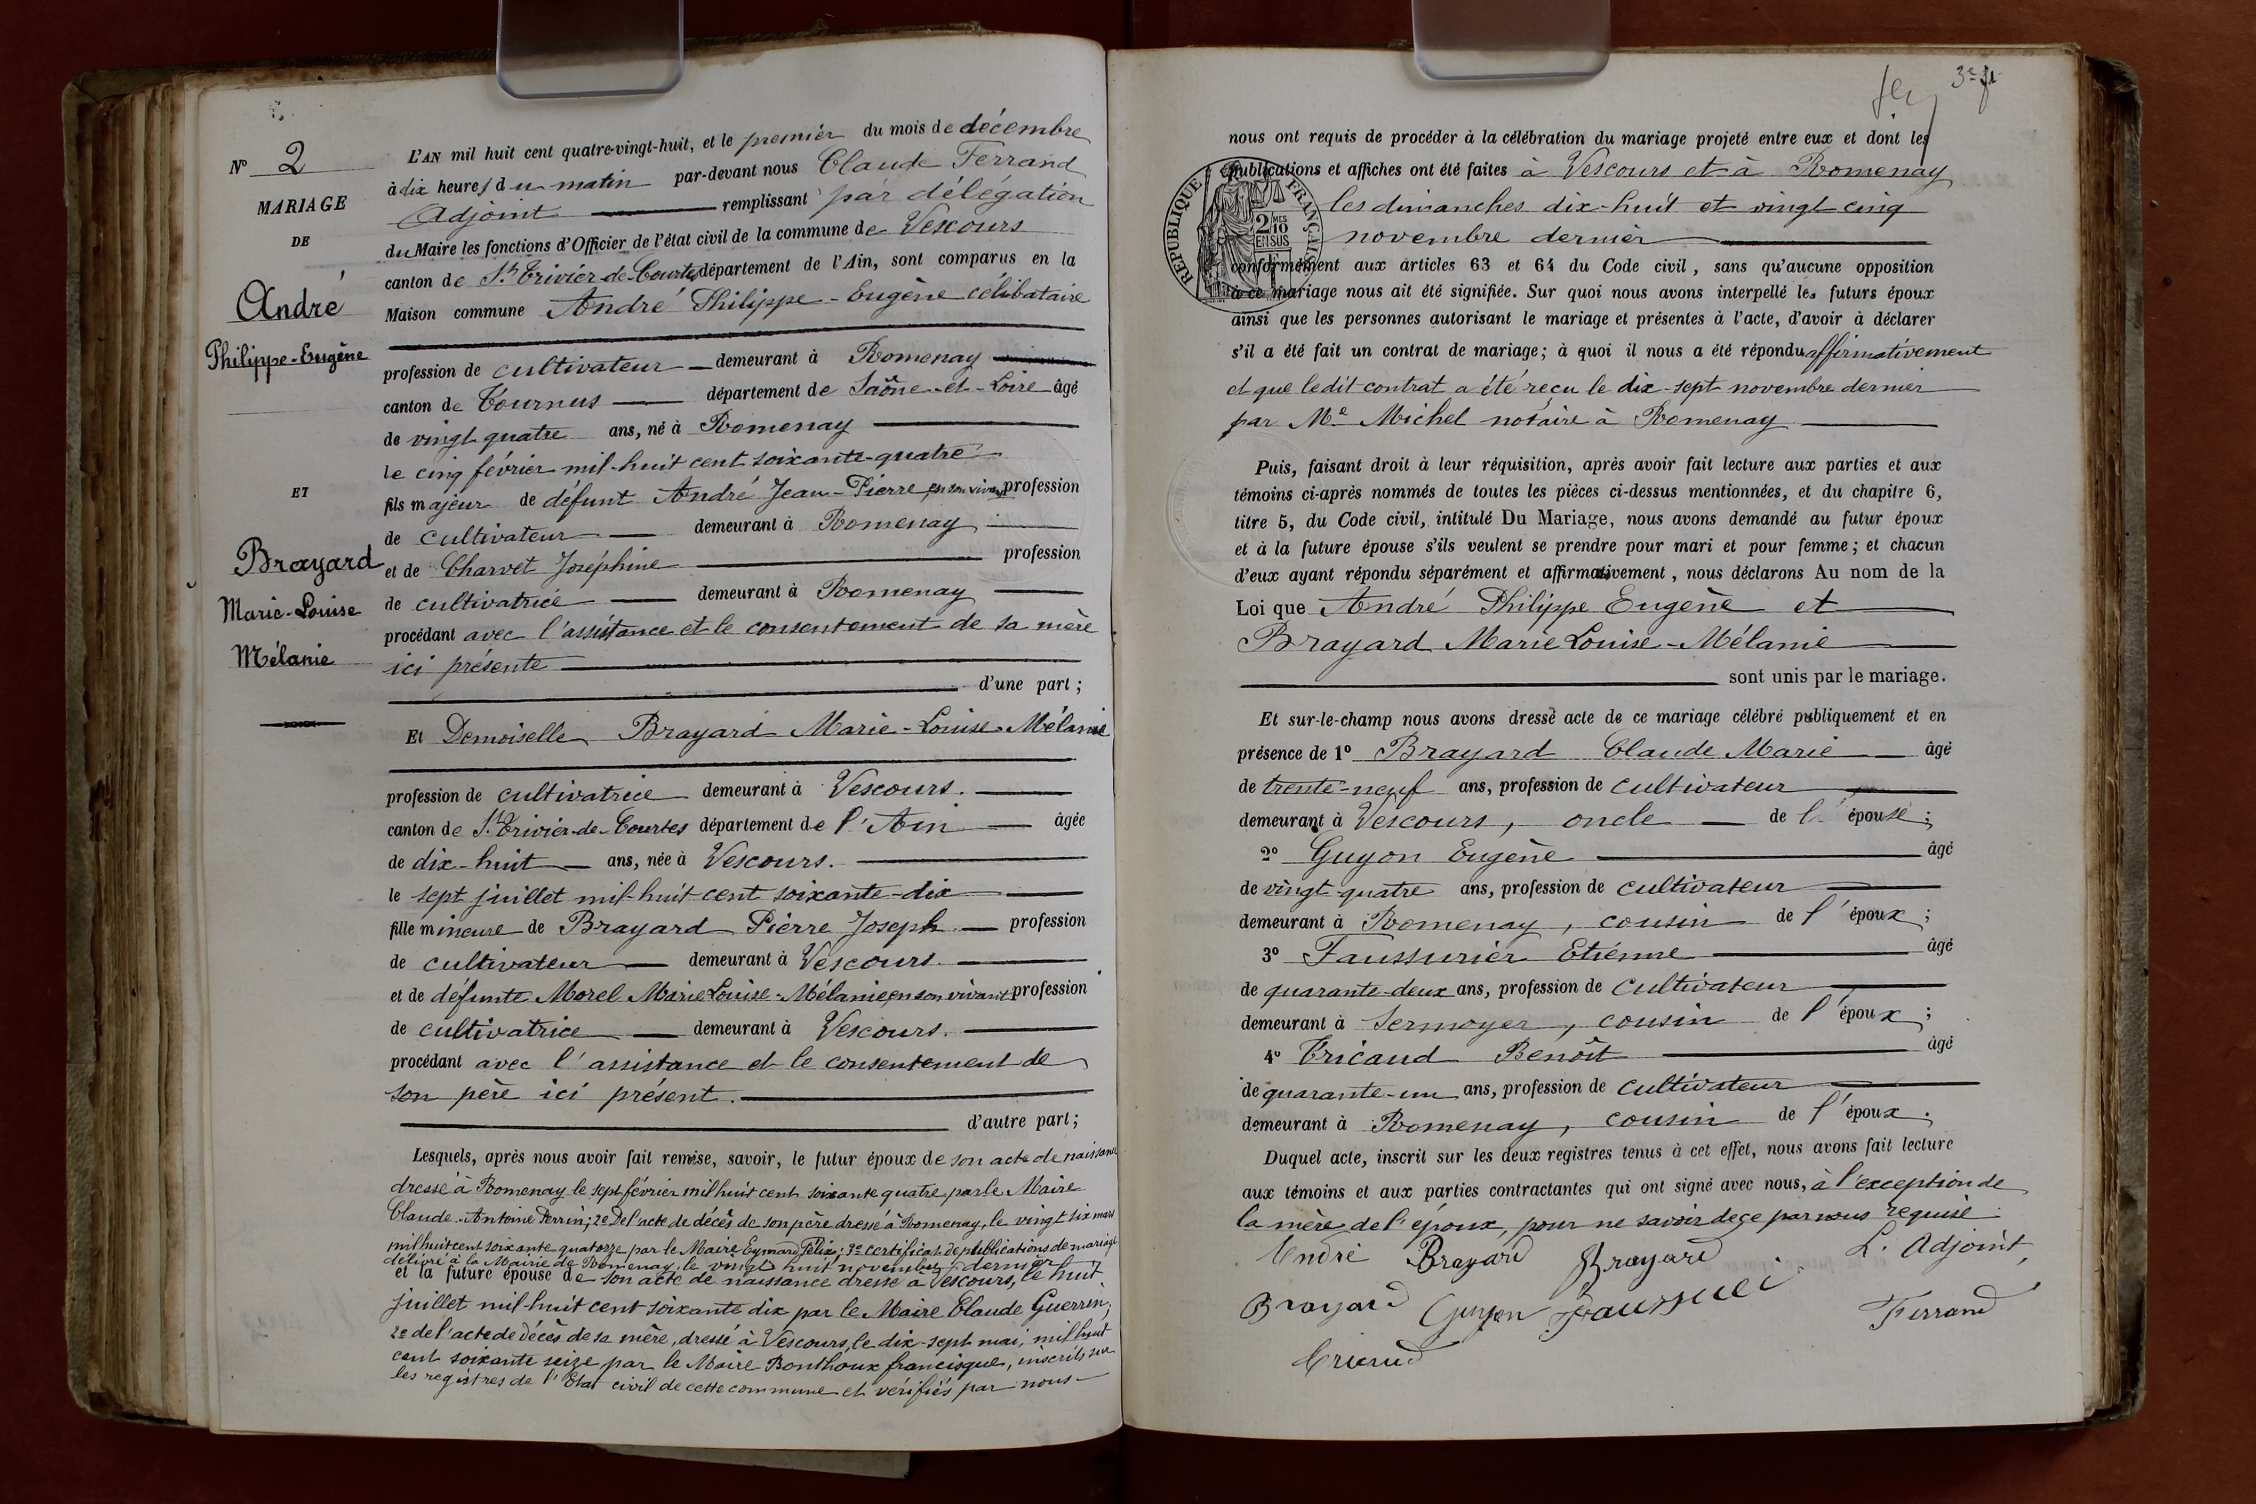 N° 2
MARIAGE
DE
André
Philippe-Eugène
ET
Brayard
Marie-Louise
Mélanie
L'AN mil huit cent quatre-vingt-huit, et le premier du mois de décembre
à dix heures du matin par-devant nous Claude Ferrand
Adjoint remplissant par délégation
du Maire les fonctions d'Officier de l'état civil de la commune de Vescours
canton de St Trivier-de-Courtes département de l'Ain, sont comparus en la
Maison commune André Philippe-Eugène célibataire
profession de cultivateur demeurant à Romenay
canton de Tournus département de Saône-et-Loire âgé
de vingt quatre ans, né à Romenay
le cinq février mil-huit cent soixante-quatre
fils majeur de défunt André Jean-Pierre en son vivant profession
de cultivateur demeurant à Romenay
et de Charvet Joséphine profession
de cultivatrice demeurant à Romenay
procédant avec l'assistance et le consentement de sa mère
ici présente
d'une part;
Et Demoiselle Brayard Marie-Louise-Mélanie
profession de cultivatrice demeurant à Vescours.
canton de St Trivier-de-Courtes département de l'Ain âgée
de dix-huit ans, née à Vescours.
le sept juillet mil-huit cent soixante-dix
fille mineure de Brayard Pierre Joseph profession
de cultivateur demeurant à Vescours.
et de défunte Morel Marie Louise-Mélanie en son vivant profession
de cultivatrice demeurant à Vescours.
procédant avec l'assistance et le consentement de
son père ici présent.
d'autre part;
Lesquels, après nous avoir fait remise, savoir, le futur époux de son acte de naissance
dressé à Romenay le sept février mil huit cent soixante quatre par le Maire
Claude-Antoine Perrin; 2e De l'acte de décès de son père dressé à Romenay, le vingt six mars
mil huit cent soixante quatorze par le Maire Eymard Félix; 3e certificat de publications de mariage
délivré à la Mairie de Romenay, le vingt huit novembre dernier
et la future épouse de son acte de naissance dressé à Vescours, le huit
juillet mil-huit cent soixante dix par le Maire Claude Guerrin;
2e de l'acte de décès de sa mère, dressé à Vescours, le dix-sept mai, mil huit
cent soixante seize par le Maire Bonthoux francisque, inscrits sur
les registres de l'Etat civil de cette commune et vérifiés par nous
3e
nous ont requis de procéder à la célébration du mariage projeté entre eux et dont les
publications et affiches ont été faites à Vescours et à Romenay
les dimanches dix-huit et vingt cinq
novembre dernier
RÉPUBLIQUE FRANÇAISE
2 MES 10 EN SUS
conformément aux articles 63 et 64 du Code civil, sans qu'aucune opposition
à ce mariage nous ait été signifiée. Sur quoi nous avons interpellé les futurs époux
ainsi que les personnes autorisant le mariage et présentes à l'acte, d'avoir à déclarer
s'il a été fait un contrat de mariage; à quoi il nous a été répondu affirmativement
et que ledit contrat a été reçu le dix-sept novembre dernier
par Me Michel notaire à Romenay
Puis, faisant droit à leur réquisition, après avoir fait lecture aux parties et aux
témoins ci-après nommés de toutes les pièces ci-dessus mentionnées, et du chapitre 6,
titre 5, du Code civil, intitulé Du Mariage, nous avons demandé au futur époux
et à la future épouse s'ils veulent se prendre pour mari et pour femme; et chacun
d'eux ayant répondu séparément et affirmativement, nous déclarons Au nom de la
Loi que André Philippe Eugène et
Brayard Marie Louise-Mélanie
sont unis par le mariage.
Et sur-le-champ nous avons dressé acte de ce mariage célébré publiquement et en
présence de 1° Brayard Claude Marie âgé
de trente-neuf ans, profession de cultivateur
demeurant à Vescours, oncle de l'épouse;
2° Guyon Eugène âgé
de vingt-quatre ans, profession de cultivateur
demeurant à Romenay, cousin de l'époux;
3° Faussurier Etienne âgé
de quarante-deux ans, profession de cultivateur
demeurant à Sermoyer, cousin de l'époux;
4° Tricaud Benoît âgé
de quarante-un ans, profession de cultivateur
demeurant à Romenay, cousin de l'époux.
Duquel acte, inscrit sur les deux registres tenus à cet effet, nous avons fait lecture
aux témoins et aux parties contractantes qui ont signé avec nous, à l'exception de
la mère de l'époux, pour ne savoir de ce par nous requise.
André Brayard Brayard L. Adjoint,
Brayard Guyon Ferrand
Tricaud